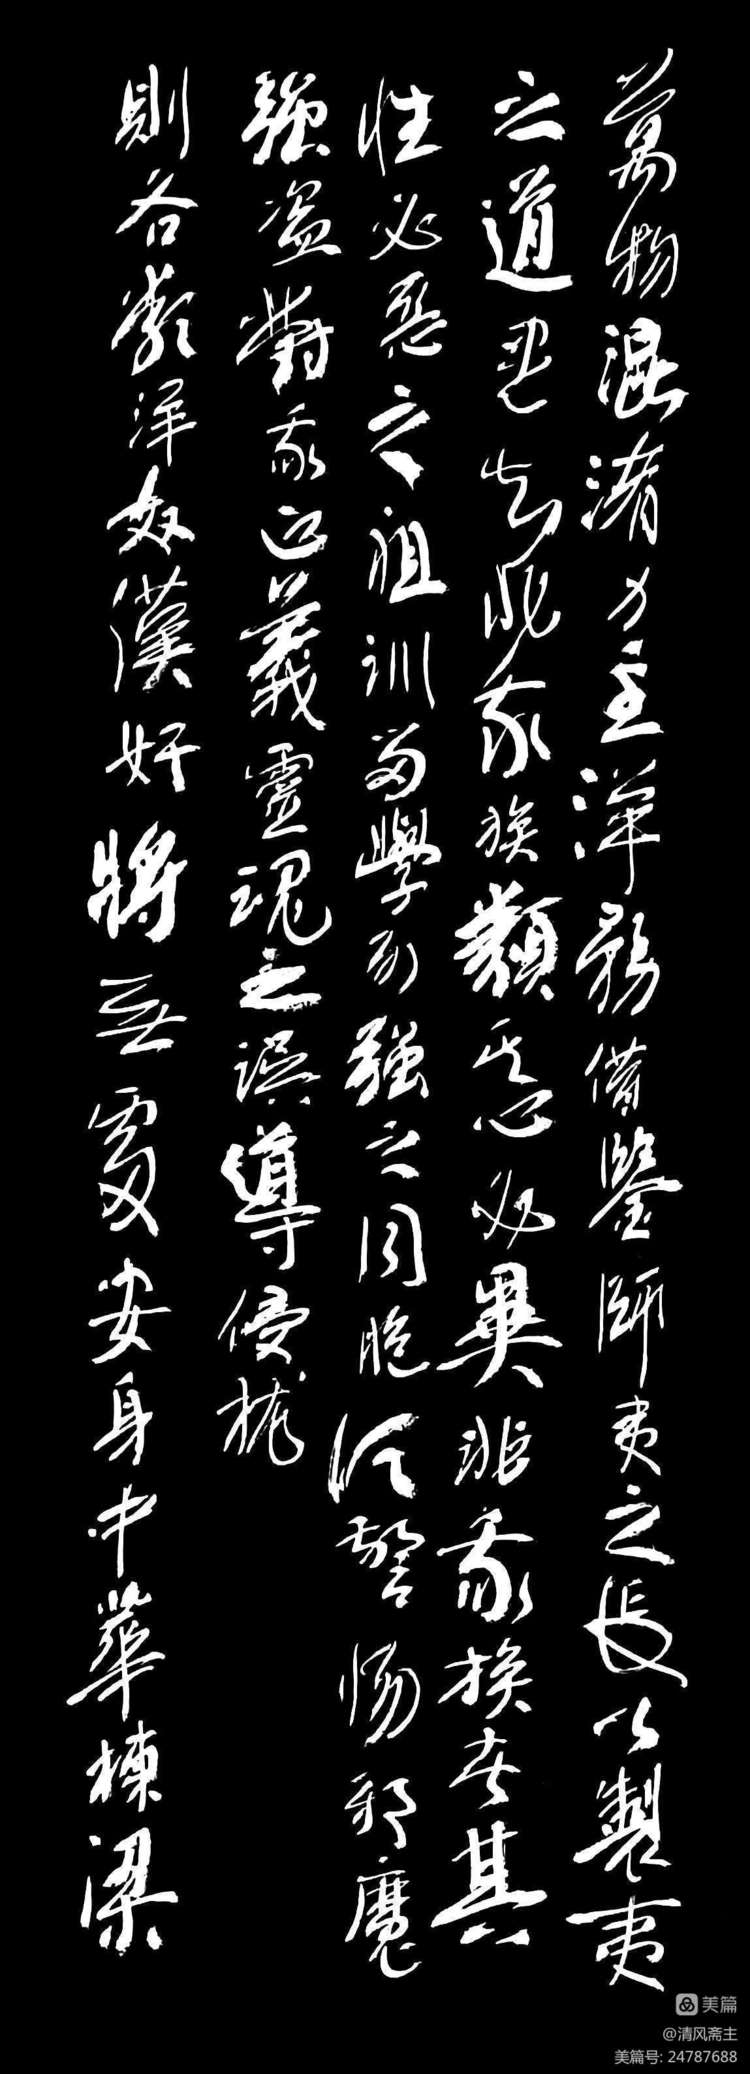 萬物混淆力主洋務借鑒師夷之長以製夷
之道知非我族類其心必異非我族者其
性必惡之祖訓留學列強之同胞警惕邪魔
強盗對我正義靈魂之誤導侵擾
則各洋奴漢奸將無處安身中華棟梁
美篇
@清风斋主
美篇号: 24787688